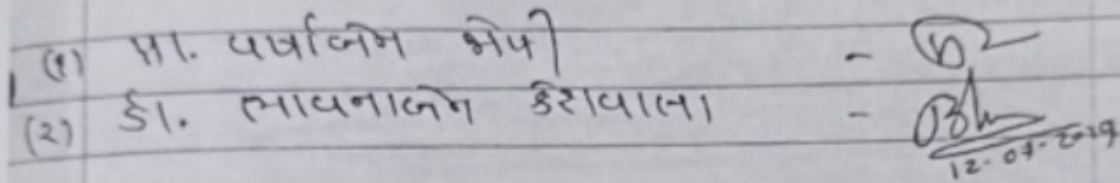 (१) પ્રા. વર્ષાબેન જોષી -
(૨) ડૉ. ભાવનાબેન કેશવાલા -
12-07-2019